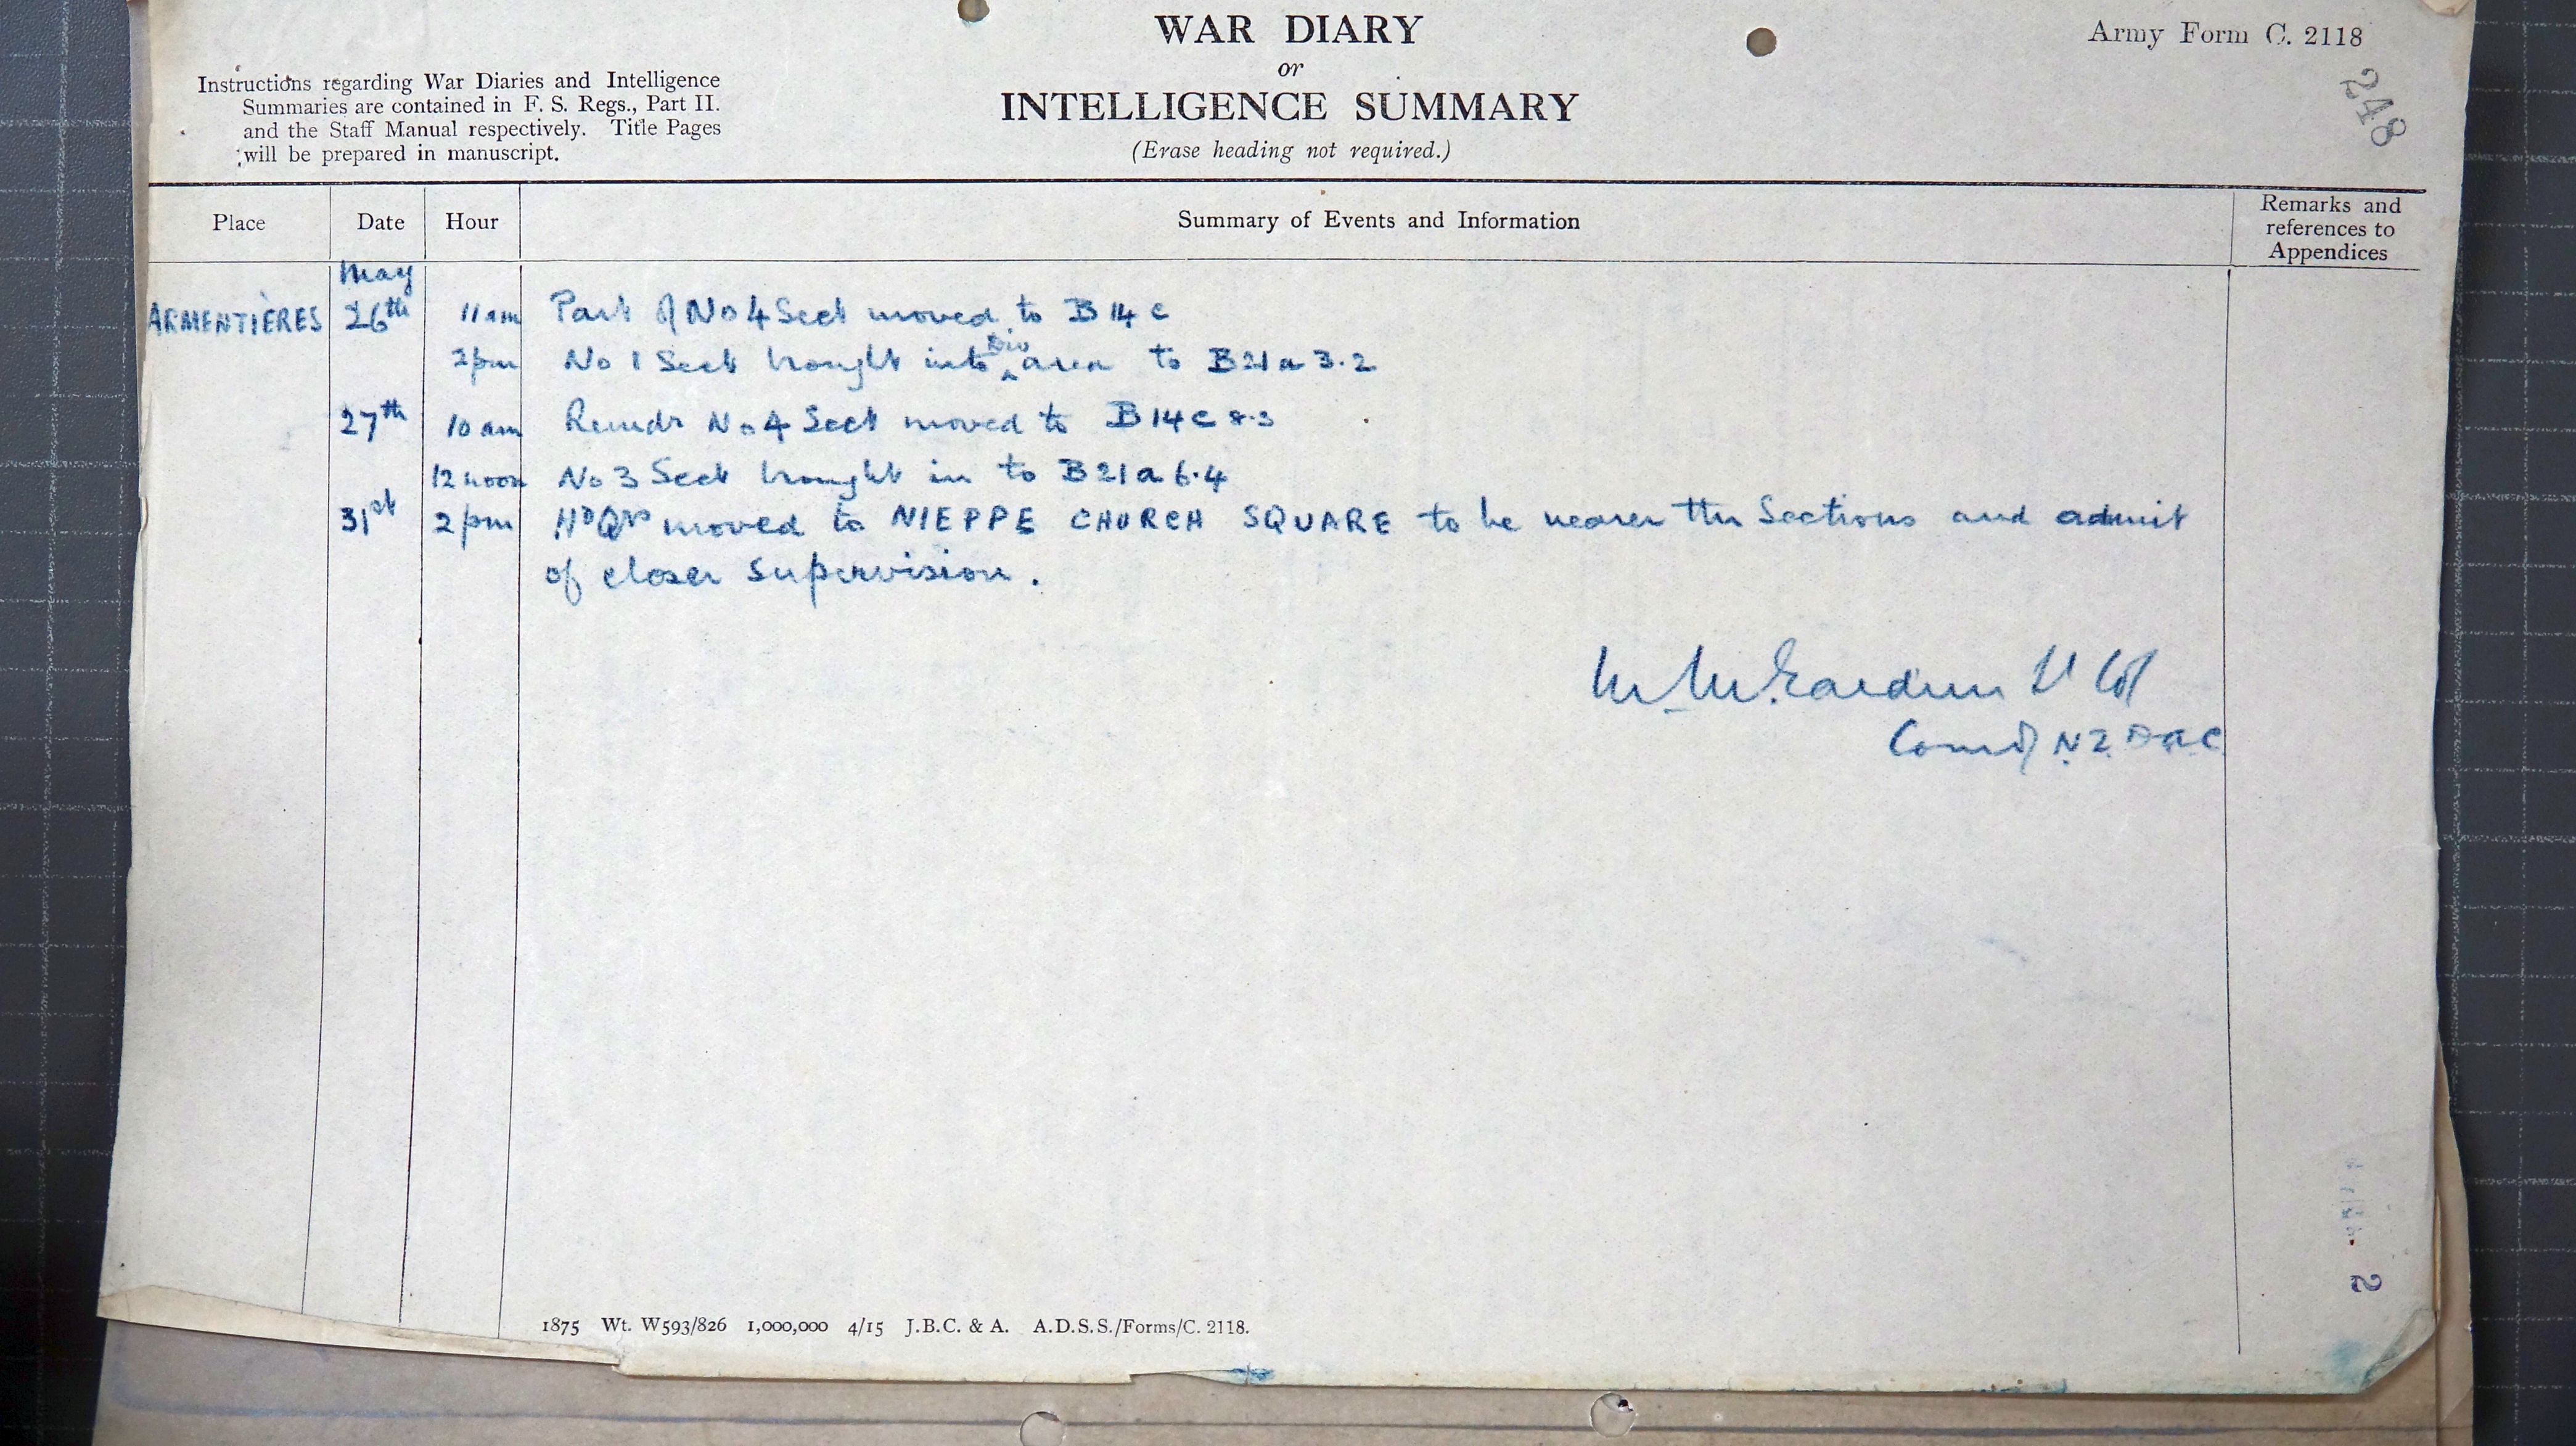 WAR DIARY
or
INTELLIGENCE SUMMARY
(Erase heading not required.)
Army Form C. 2118
248
Instructions regarding War Diaries and Intelligence
Summaries are contained in F. S. Regs., Part II.
and the Staff Manual respectively. Title Pages
will be prepared in manuscript.
Place Date Hour Summary of Events and Information Remarks and
references to
Appendices
May
ARMENTIÈRES 26th 11am Part of No 4 Sect moved to B 14 c
2pm No 1 Sect brought into Div area to B 21 a 3.2
27th 10 am Remdr No 4 Sect moved to B 14 c 8.3
12 noon No 3 Sect brought in to B 21 a 6.4
31st 2 pm HdQrs moved to NIEPPE CHURCH SQUARE to be nearer the Sections and admit
of closer supervision.
Lt Col
Comdg N Z DAC
2
1875 Wt. W593/826 1,000,000 4/15 J.B.C. & A. A.D.S.S./Forms/C. 2118.